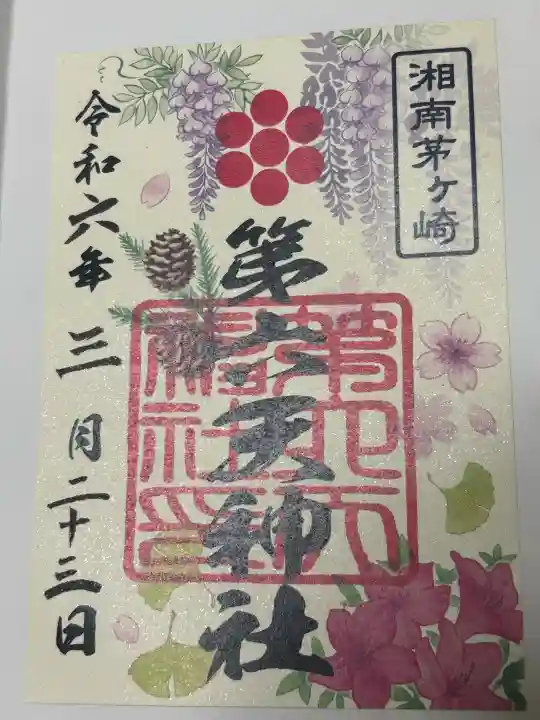 湘南茅ヶ崎
第六天神社
第六天神社印
令和六年三月二十三日